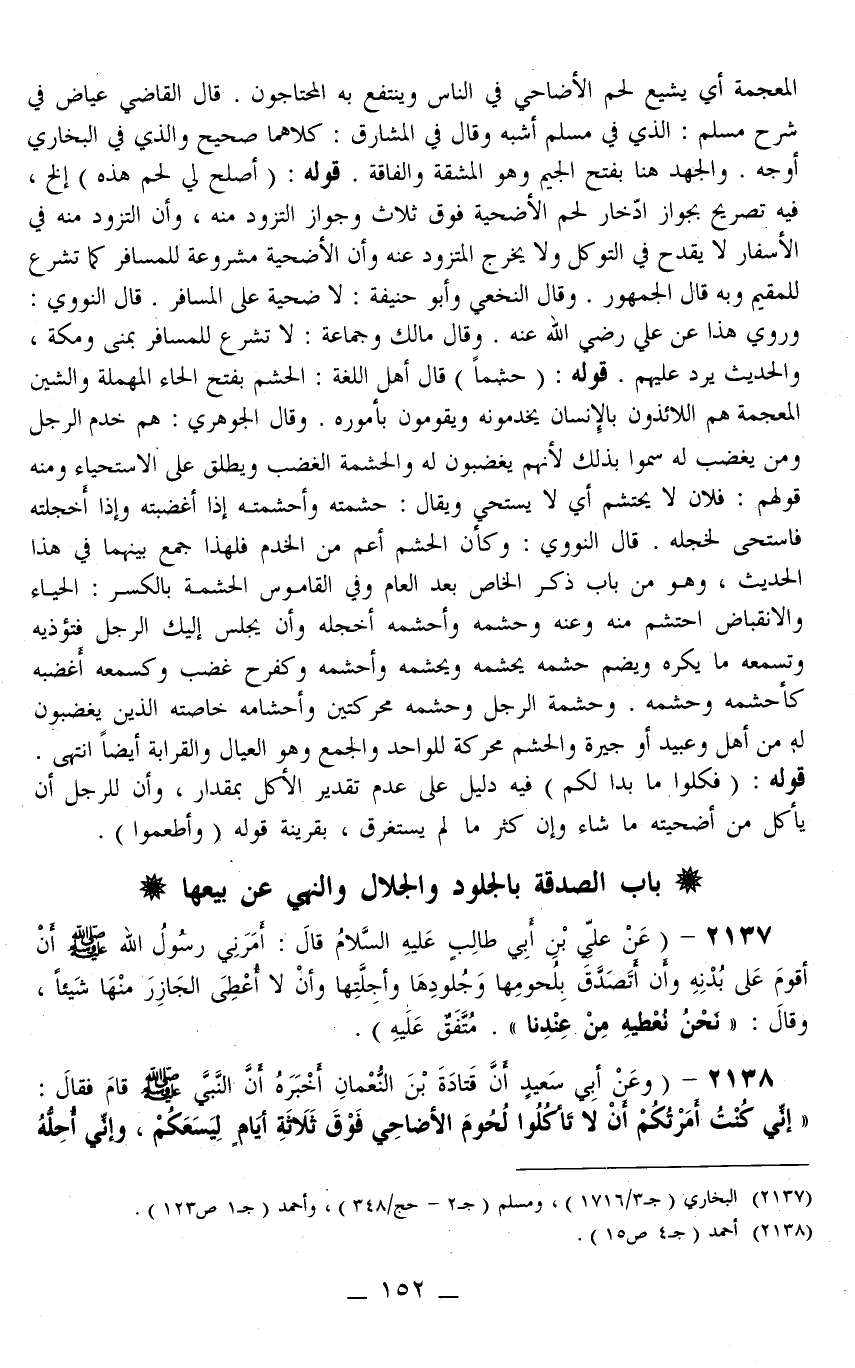 المعجمة أي يشيع لحم الأضاحي في الناس وينتفع به المحتاجون . قال القاضي عياض في
شرح مسلم : الذي في مسلم أشبه وقال في المشارق : كلاهما صحيح والذي في البخاري
أوجه . والجهد هنا بفتح الجيم وهو المشقة والفاقة . قوله : ( أصلح لي لحم هذه ) إلخ ،
فيه تصريح بجواز ادّخار لحم الأضحية فوق ثلاث وجواز التزود منه ، وأن التزود منه في
الأسفار لا يقدح في التوكل ولا يخرج المتزود عنه وأن الأضحية مشروعة للمسافر كما تشرع
للمقيم وبه قال الجمهور . وقال النخعي وأبو حنيفة : لا ضحية على المسافر . قال النووي :
وروي هذا عن علي رضي الله عنه . وقال مالك وجماعة : لا تشرع للمسافر بمنى ومكة ،
والحديث يرد عليهم . قوله : ( حشماً ) قال أهل اللغة : الحشم بفتح الحاء المهملة والشين
المعجمة هم اللائذون بالإنسان يخدمونه ويقومون بأموره . وقال الجوهري : هم خدم الرجل
ومن يغضب له سموا بذلك لأنهم يغضبون له والحشمة الغضب ويطلق على الاستحياء ومنه
قولهم : فلان لا يحتشم أي لا يستحي ويقال : حشمته وأحشمتـه إذا أغضبته وإذا أخجلته
فاستحى لخجله . قال النووي : وكأن الحشم أعم من الخدم فلهذا جمع بينهما في هذا
الحديث ، وهـو من باب ذكـر الخاص بعد العام وفي القاموس الحشمـة بالكسر : الحيـاء
والانقباض احتشم منه وعنه وحشمه وأحشمه أخجله وأن يجلس إليك الرجل فتؤذيه
وتسمعه ما يكره ويضم حشمه يحشمه ويحشمه وأحشمه وكفرح غضب وكسمعه أغضبه
كأحشمه وحشمه . وحشمة الرجل وحشمه محركتين وأحشامه خاصته الذين يغضبون
له من أهل وعبيد أو جيرة والحشم محركة للواحد والجمع وهو العيال والقرابة أيضاً انتهى .
قوله : ( فكلوا ما بدا لكم ) فيه دليل على عدم تقدير الأكل بمقدار ، وأن للرجل أن
يأكل من أضحيته ما شاء وإن كثر ما لم يستغرق ، بقرينة قوله ( وأطعموا ) .
باب الصدقة بالجلود والجلال والنهي عن بيعها
٢١٣٧ – ( عَنْ عليِّ بْنِ أَبي طالبٍ عَليهِ السَّلامُ قالَ : أَمَرَنِي رسُولُ الله ﷺ أَنْ
أقومَ عَلى بُدْنِهِ وأَن أَتَصَدَّقَ بِلُحومِها وَجُلودِهَا وأجِلَّتِها وأنْ لا أُعْطِىَ الجَازِرَ منْهَا شَيئاً ،
وقالَ : « نَحْنُ نُعْطيهِ مِنْ عِنْدِنا » . مُتَّفَقٌ عَلَيهِ ) .
٢١٣٨ – ( وعَنْ أبي سَعيدٍ أَنَّ قَتادَةَ بْنَ النُّعْمانِ أَخْبَرَهُ أَنَّ النَّبيَّ ﷺ قامَ فقالَ :
« إنِّي كُنْتُ أَمَرْتُكُمْ أَنْ لا تَأكُلُوا لُحُومَ الأضاحِي فَوْقَ ثَلَاثَةِ أيَامٍ لِيَسَعَكُمْ ، وإنِّي أُحِلُّهُ
(٢١٣٧) البخاري ( جـ١٧١٦/٣ ) ، ومسلم ( جـ٢ – حج/٣٤٨ ) ، وأحمد ( جـ١ ص١٢٣ ) .
(٢١٣٨) أحمد ( جـ٤ ص١٥ ) .
— ١٥٢ —